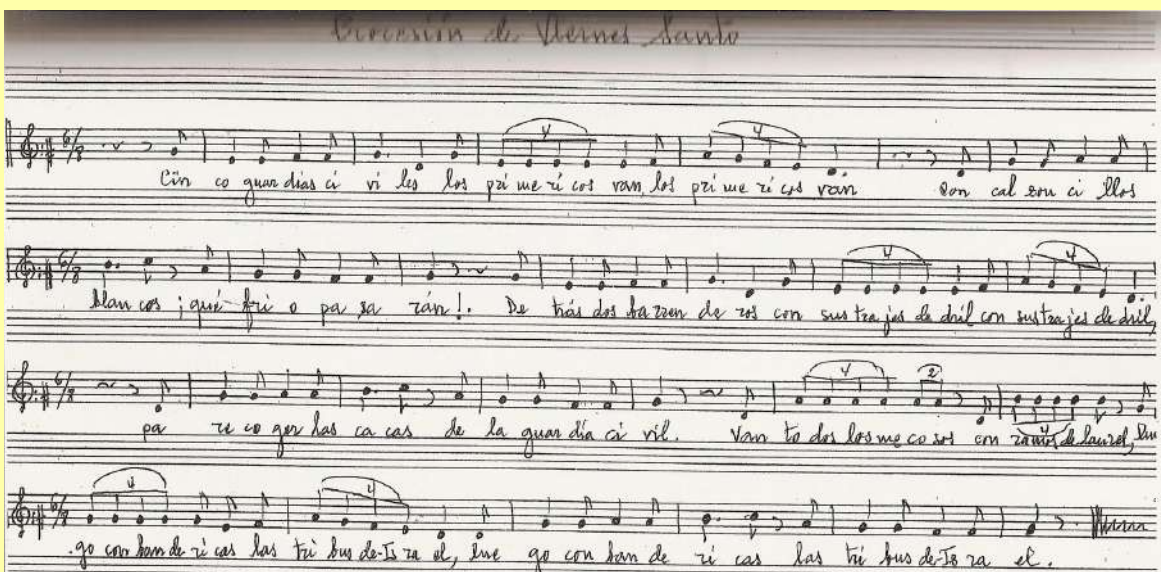 Procesión de Viernes Santo
Cin co guar dias ci vi les los pri me ri cos van, los pri me ri cos van con cal zon ci llos
blan cos ¡qué frí o pa sa rán!. De trás dos ba rren de ros con sus tra jes de dril con sus tra jes de dril,
pa re co ger las ca cas de la guar dia ci vil. Van to dos los me co sos con ramos de laurel, lue
go con ban de ri cas las tri bus de-Is ra el, lue go con ban de ri cas las tri bus de-Is ra el.